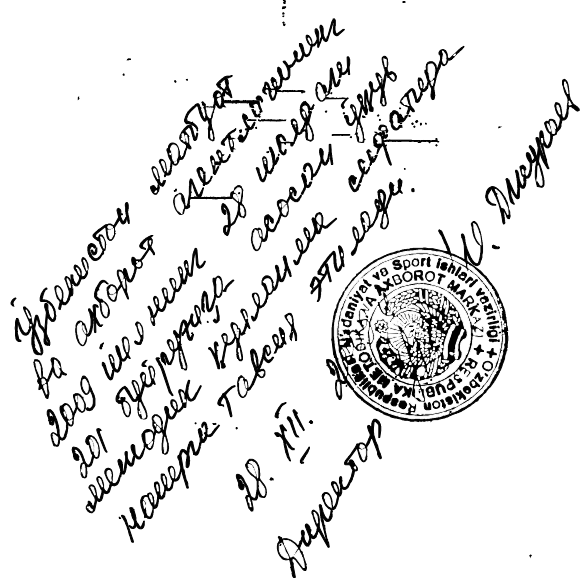 Ўзбекистон матбуот
ва ахборот агентлигининг
2009 йилнинг 28 июлдаги
201 буйруғига асосан ўқув
методик қўлланма сифатида
нашрга тавсия этилади.
28. XII.
Директор Ш. Джураев
O'zbekiston Respublikasi Madaniyat va Sport ishlari vazirligi
RESPUBLIKA METODIKA VA AXBOROT MARKAZI